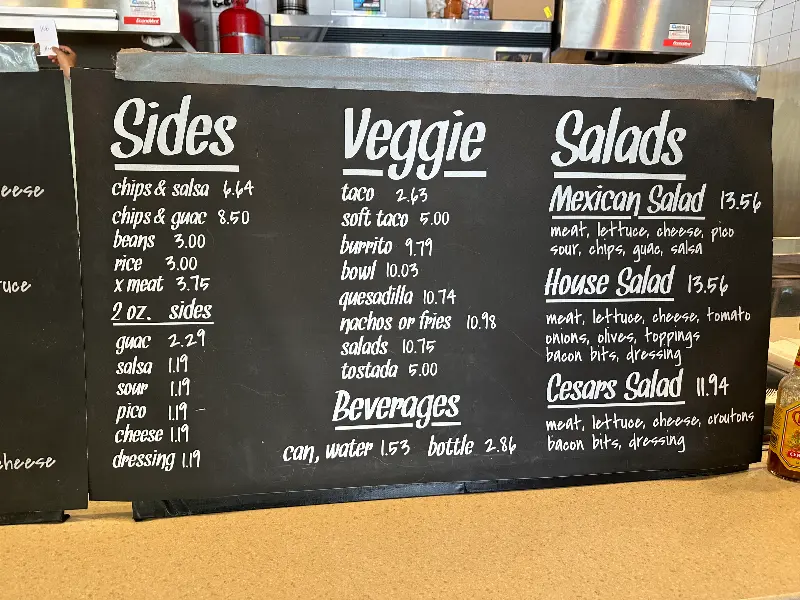 Sides
chips & salsa 6.64
chips & guac 8.50
beans 3.00
rice 3.00
x meat 3.75
2 oz. sides
guac 2.29
salsa 1.19
sour 1.19
pico 1.19
cheese 1.19
dressing 1.19
Veggie
taco 2.63
soft taco 5.00
burrito 9.79
bowl 10.03
quesadilla 10.74
nachos or fries 10.98
salads 10.75
tostada 5.00
Beverages
can, water 1.53 bottle 2.86
Salads
Mexican Salad 13.56
meat, lettuce, cheese, pico
sour, chips, guac, salsa
House Salad 13.56
meat, lettuce, cheese, tomato
onions, olives, toppings
bacon bits, dressing
Cesars Salad 11.94
meat, lettuce, cheese, croutons
bacon bits, dressing
cheese